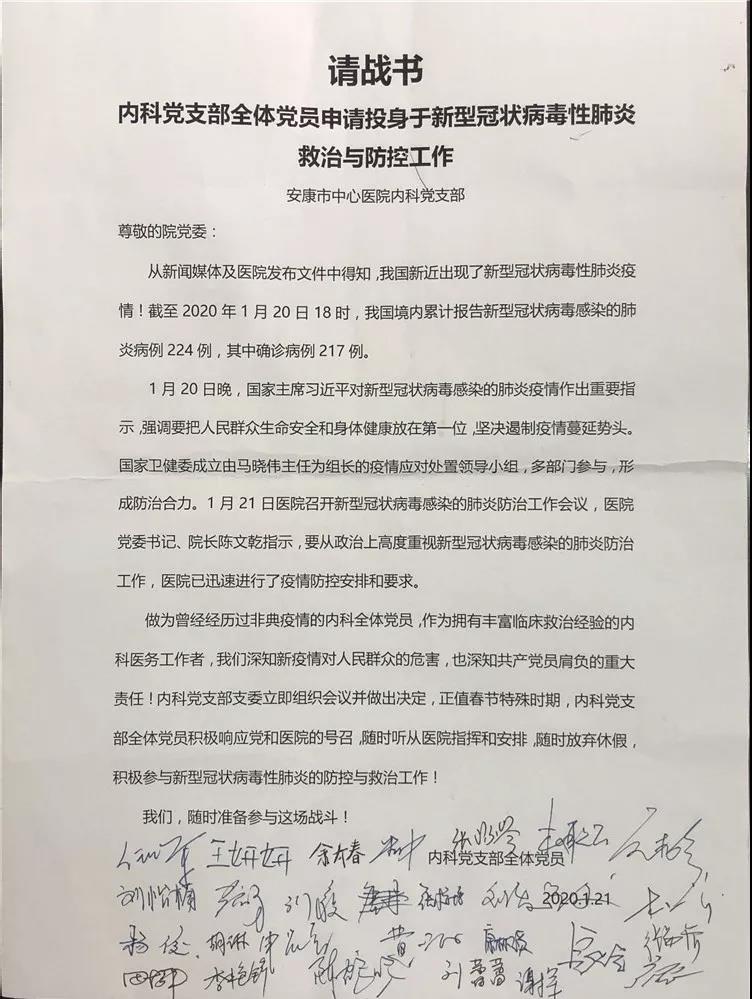 请战书
内科党支部全体党员申请投身于新型冠状病毒性肺炎
救治与防控工作
安康市中心医院内科党支部
尊敬的院党委：
从新闻媒体及医院发布文件中得知，我国新近出现了新型冠状病毒性肺炎疫
情！截至 2020 年 1 月 20 日 18 时，我国境内累计报告新型冠状病毒感染的肺
炎病例 224 例，其中确诊病例 217 例。
1 月 20 日晚，国家主席习近平对新型冠状病毒感染的肺炎疫情作出重要指
示，强调要把人民群众生命安全和身体健康放在第一位，坚决遏制疫情蔓延势头。
国家卫健委成立由马晓伟主任为组长的疫情应对处置领导小组，多部门参与，形
成防治合力。1 月 21 日医院召开新型冠状病毒感染的肺炎防治工作会议，医院
党委书记、院长陈文乾指示，要从政治上高度重视新型冠状病毒感染的肺炎防治
工作，医院已迅速进行了疫情防控安排和要求。
做为曾经经历过非典疫情的内科全体党员，作为拥有丰富临床救治经验的内
科医务工作者，我们深知新疫情对人民群众的危害，也深知共产党员肩负的重大
责任！内科党支部支委立即组织会议并做出决定，正值春节特殊时期，内科党支
部全体党员积极响应党和医院的号召，随时听从医院指挥和安排，随时放弃休假，
积极参与新型冠状病毒性肺炎的防控与救治工作！
我们，随时准备参与这场战斗！
王妍妍 余春
内科党支部全体党员
刘怡楠 2020.1.21
胡琳
李艳锦 刘蕾蕾 谢挥